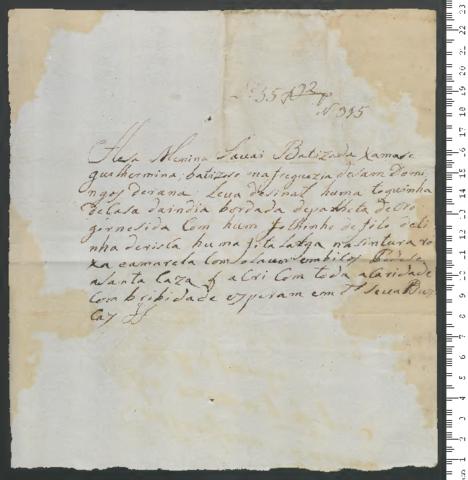 N 395
Hesa Menina Savai Batizada xamase
guelhermina, batizose na freguezia desam Domi,
ngos derana. Leva desinal huma touquinha
decasa daindia bordada depalheta de
gornesida Com hum folhinho de filo deli
nha derista huma fita larga nasintura ro
xa eamarela Com
asanta Caza a Cri Com toda a Caridade
Com bribidade esperam em
Cay